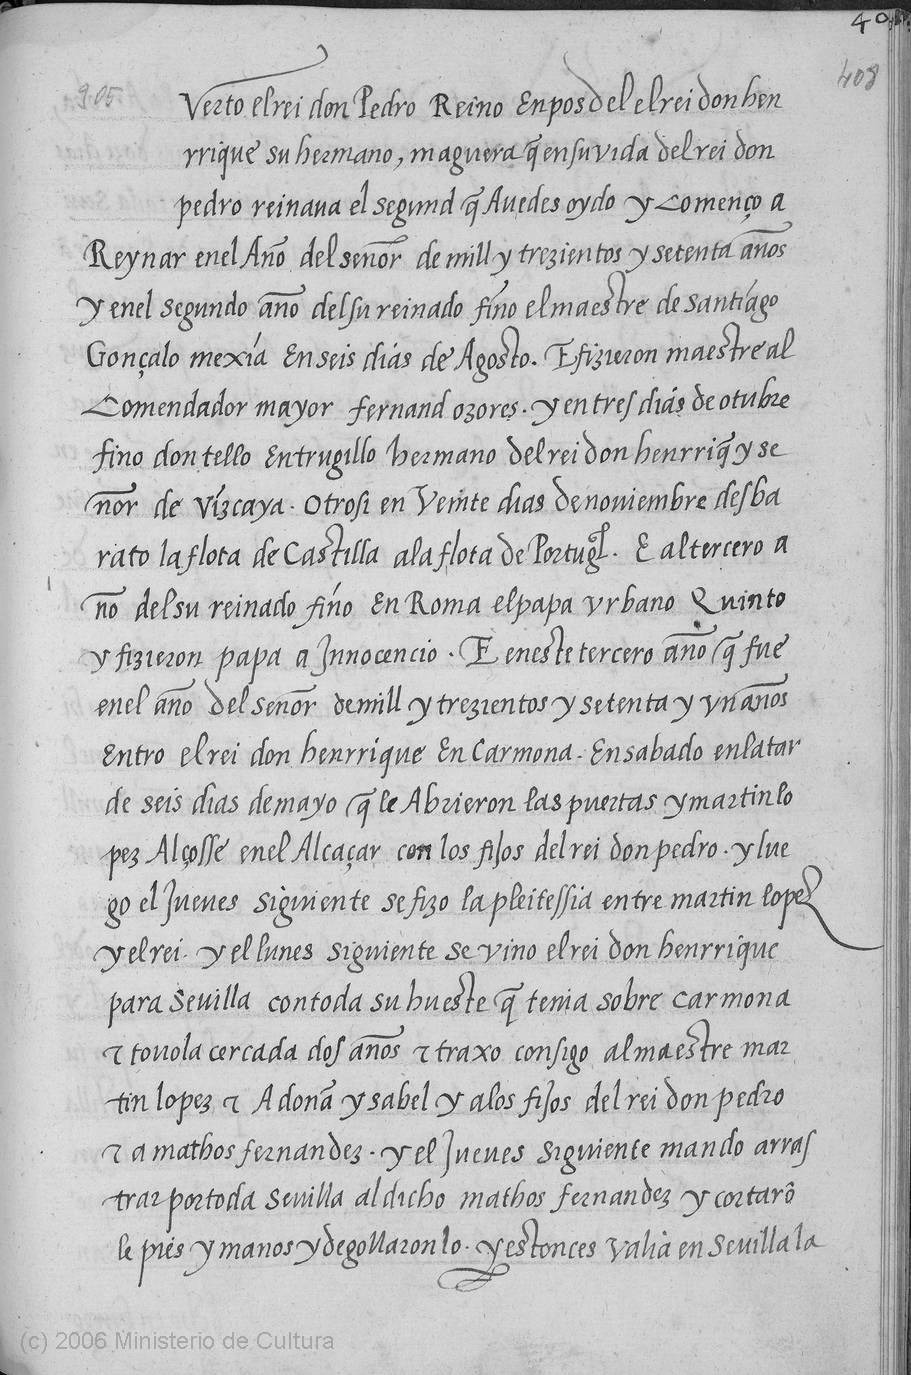 40
408
905
Verto el rei don Pedro Reino Enpos del el rei don hen
rrique su hermano, maguera q̃ en su vida del rei don
pedro reinaua el segund q̃ Auedes oydo y Començo a
Reynar en el Año del señor de mill y trezientos y setenta años
y en el segundo año del su reinado fino el maestre de Santiago
Gonçalo mexía En seis días de Agosto. E fizieron maestre al
Comendador mayor fernand ozores. y en tres días de otubre
fino don tello En trugillo hermano del rei don henrriq̃ y se
ñor de Vizcaya. Otrosi en Veinte dias de noviembre desba
rato la flota de Castilla a la flota de Portugl. E al tercero a
ño del su reinado fino En Roma el papa vrbano Quinto
y fizieron papa a Innocencio. E en este tercero año q̃ fue
en el año del señor de mill y trezientos y setenta y vn años
Entro el rei don henrrique En Carmona. En sabado en la tar
de seis dias de mayo q̃ le Abrieron las puertas y martin lo
pez Alçosse en el Alcaçar con los fijos del rei don pedro. y lue
go el Jueves siguiente se fizo la pleitessia entre martin lopez
y el rei. y el lunes siguiente se vino el rei don henrrique
para Sevilla con toda su hueste q̃ tenia sobre Carmona
τ touola cercada dos años τ traxo consigo al maestre mar
tin lopez τ A doña ysabel y a los fijos del rei don pedro
τ a mathos fernandez. y el Jueves siguiente mando arras
trar por toda Sevilla al dicho mathos fernandez y cortarõ
le pies y manos y degollaronlo. y estonces Valia en Sevilla la
(c) 2006 Ministerio de Cultura